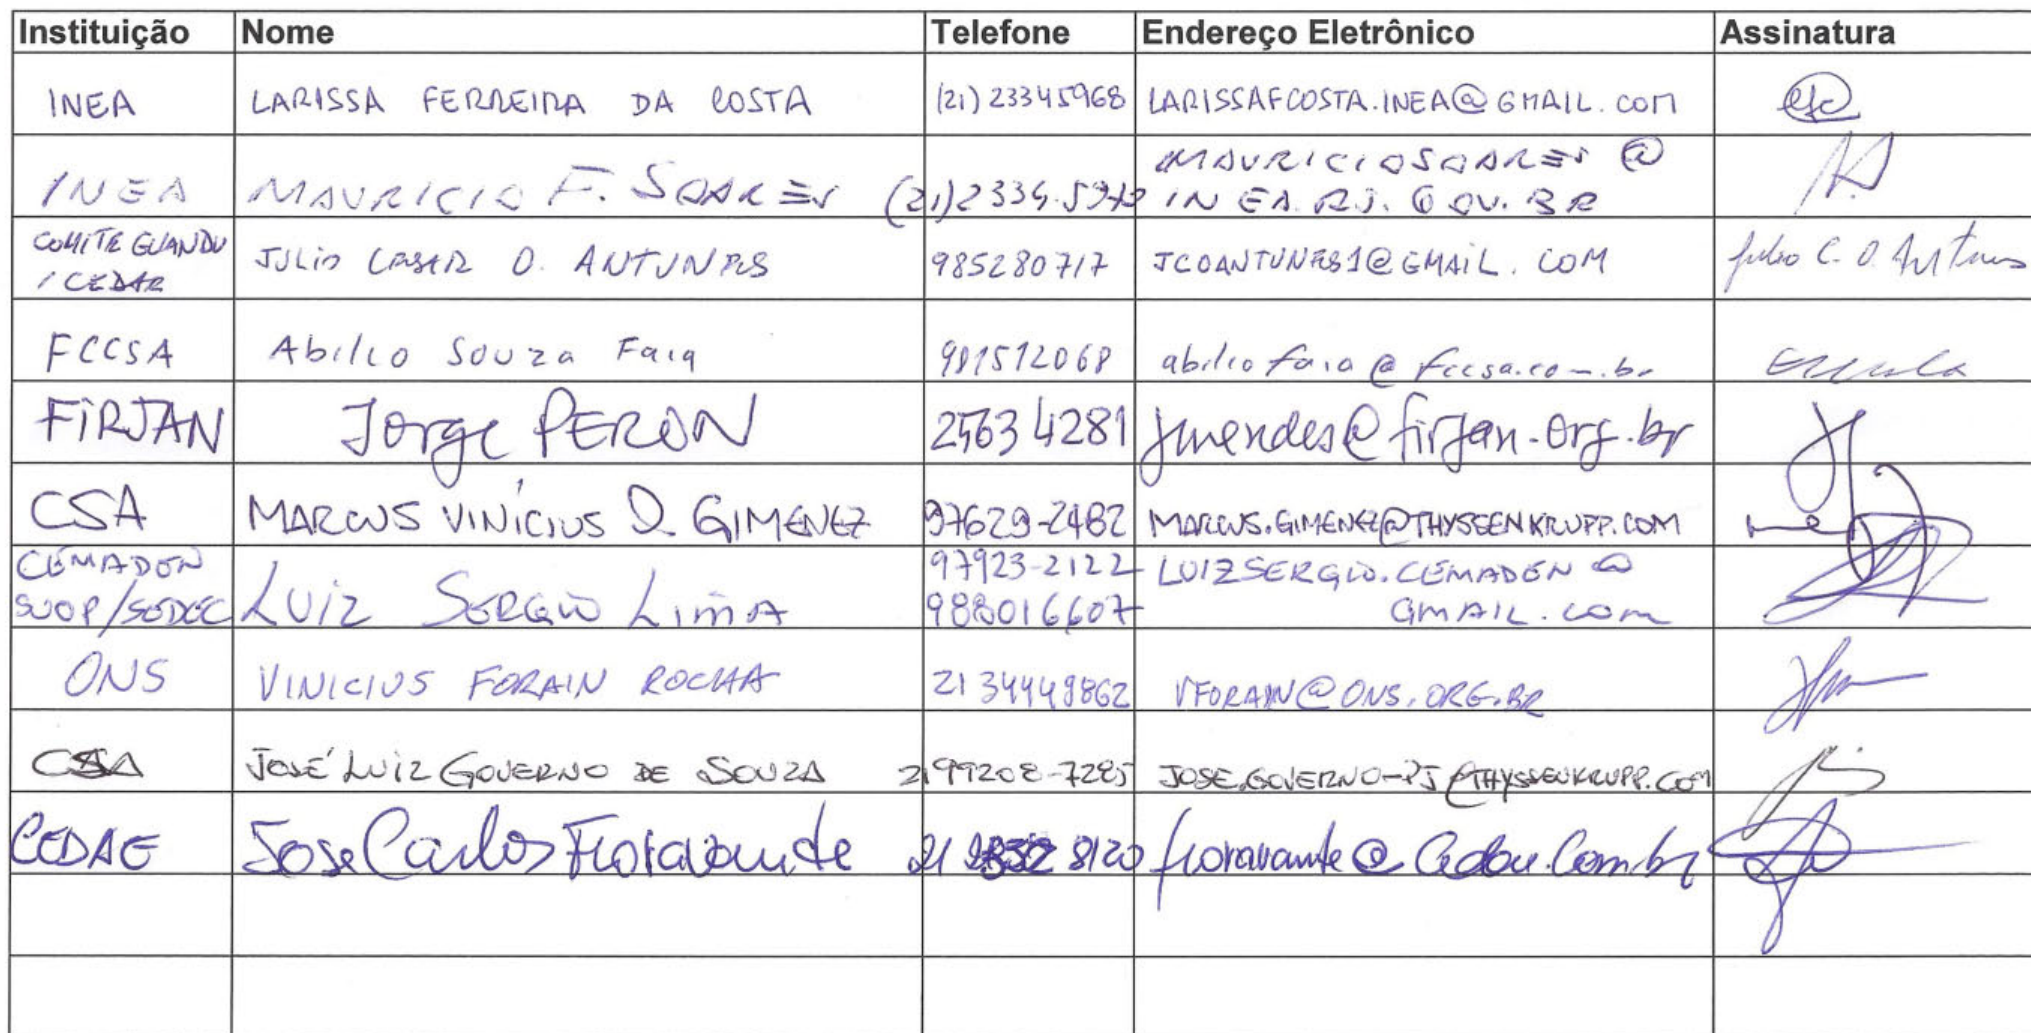 Instituição Nome Telefone Endereço Eletrônico Assinatura
INEA LARISSA FERREIRA DA COSTA (21) 23345968 LARISSAFCOSTA.INEA@GMAIL.COM
INEA MAURICIO F. SOARES (21)2334.5970 MAURICIOSOARES@
INEA.RJ.GOV.BR
COMITE GUANDU
/ CEDAE JULIO CESAR O. ANTUNES 985280717 JCOANTUNES1@GMAIL.COM Julio C. O. Antunes
FCCSA Abilio Souza Faia 981512068 abilio faia@fccsa.com.br
FIRJAN Jorge PERON 25634281 jmendes@firjan.org.br
CSA MARCUS VINÍCIUS D. GIMENEZ 97629-2482 MARCUS.GIMENEZ@THYSSENKRUPP.COM
CEMADEN 97923-2122 LUIZSERGIO.CEMADEN@
SUOP/SEDEC LUIZ SERGIO LIMA 988016607 GMAIL.COM
ONS VINICIUS FORAIN ROCHA 21 34449862 VFORAIN@ONS.ORG.BR
CSA JOSÉ LUIZ GOVERNO DE SOUZA 21 99208-7285 JOSE.GOVERNO-PJ@THYSSENKRUPP.COM
CEDAE Jose Carlos Fioravante 21 8120 fioravante@cedae.com.br